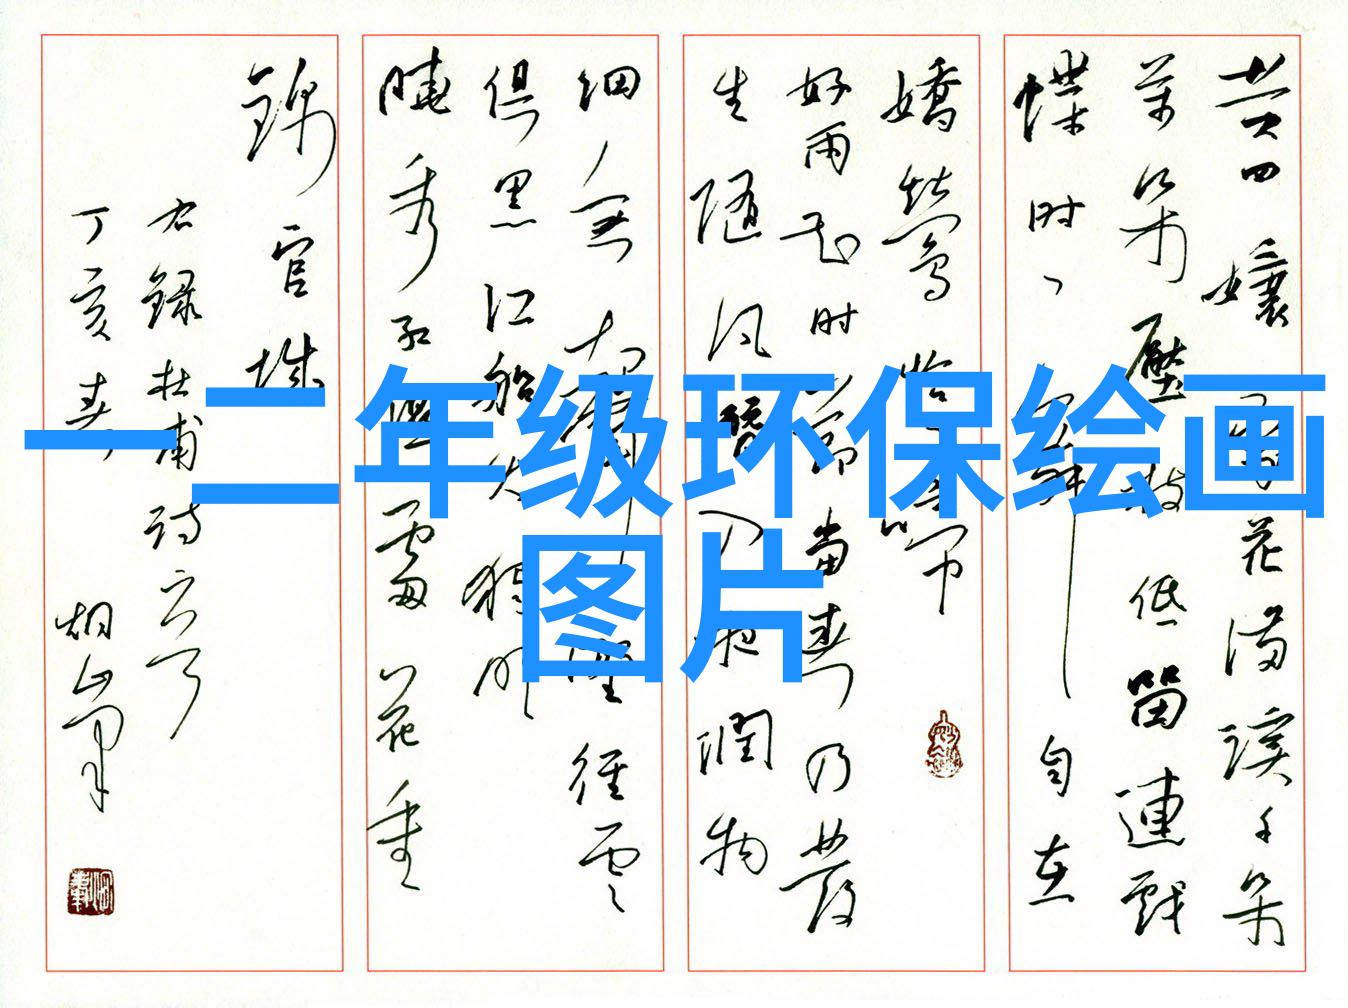 黄四娘家花满溪千朵
万朵压枝低留连戏
蝶时、舞自在
娇莺恰恰啼
好雨知时节当春乃发
生随风潜入夜润物
细无声野径云
俱黑江船火独明
晓看红湿处花重
锦官城
右录杜甫诗二首
丁亥春
一二年级环保绘画
图片